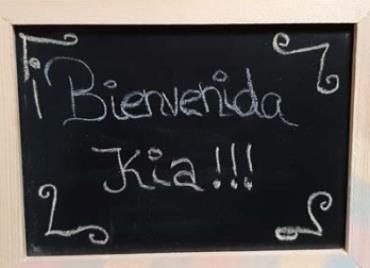 ¡Bienvenida
Kia!!!